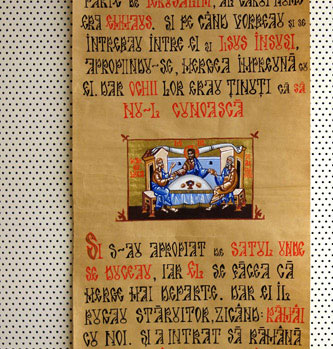 PARTE DE IERUSALIM, AL CĂRUI NUME
ERA EMMAUS. ȘI PE CÂND VORBEAU ȘI SE
ÎNTREBAU ÎNTRE EI ȘI ISUS ÎNSUȘI,
APROPIINDU-SE, MERGEA ÎMPREUNĂ CU
EI. DAR OCHII LOR ERAU ȚINUȚI CA SĂ
NU-L CUNOASCĂ
ȘI S-AU APROPIAT DE SATUL UNDE
SE DUCEAU, IAR EL SE FĂCEA CĂ
MERGE MAI DEPARTE. DAR EI ÎL
RUGAU STĂRUITOR, ZICÂND: RĂMÂI
CU NOI. ȘI A INTRAT SĂ RĂMÂNĂ